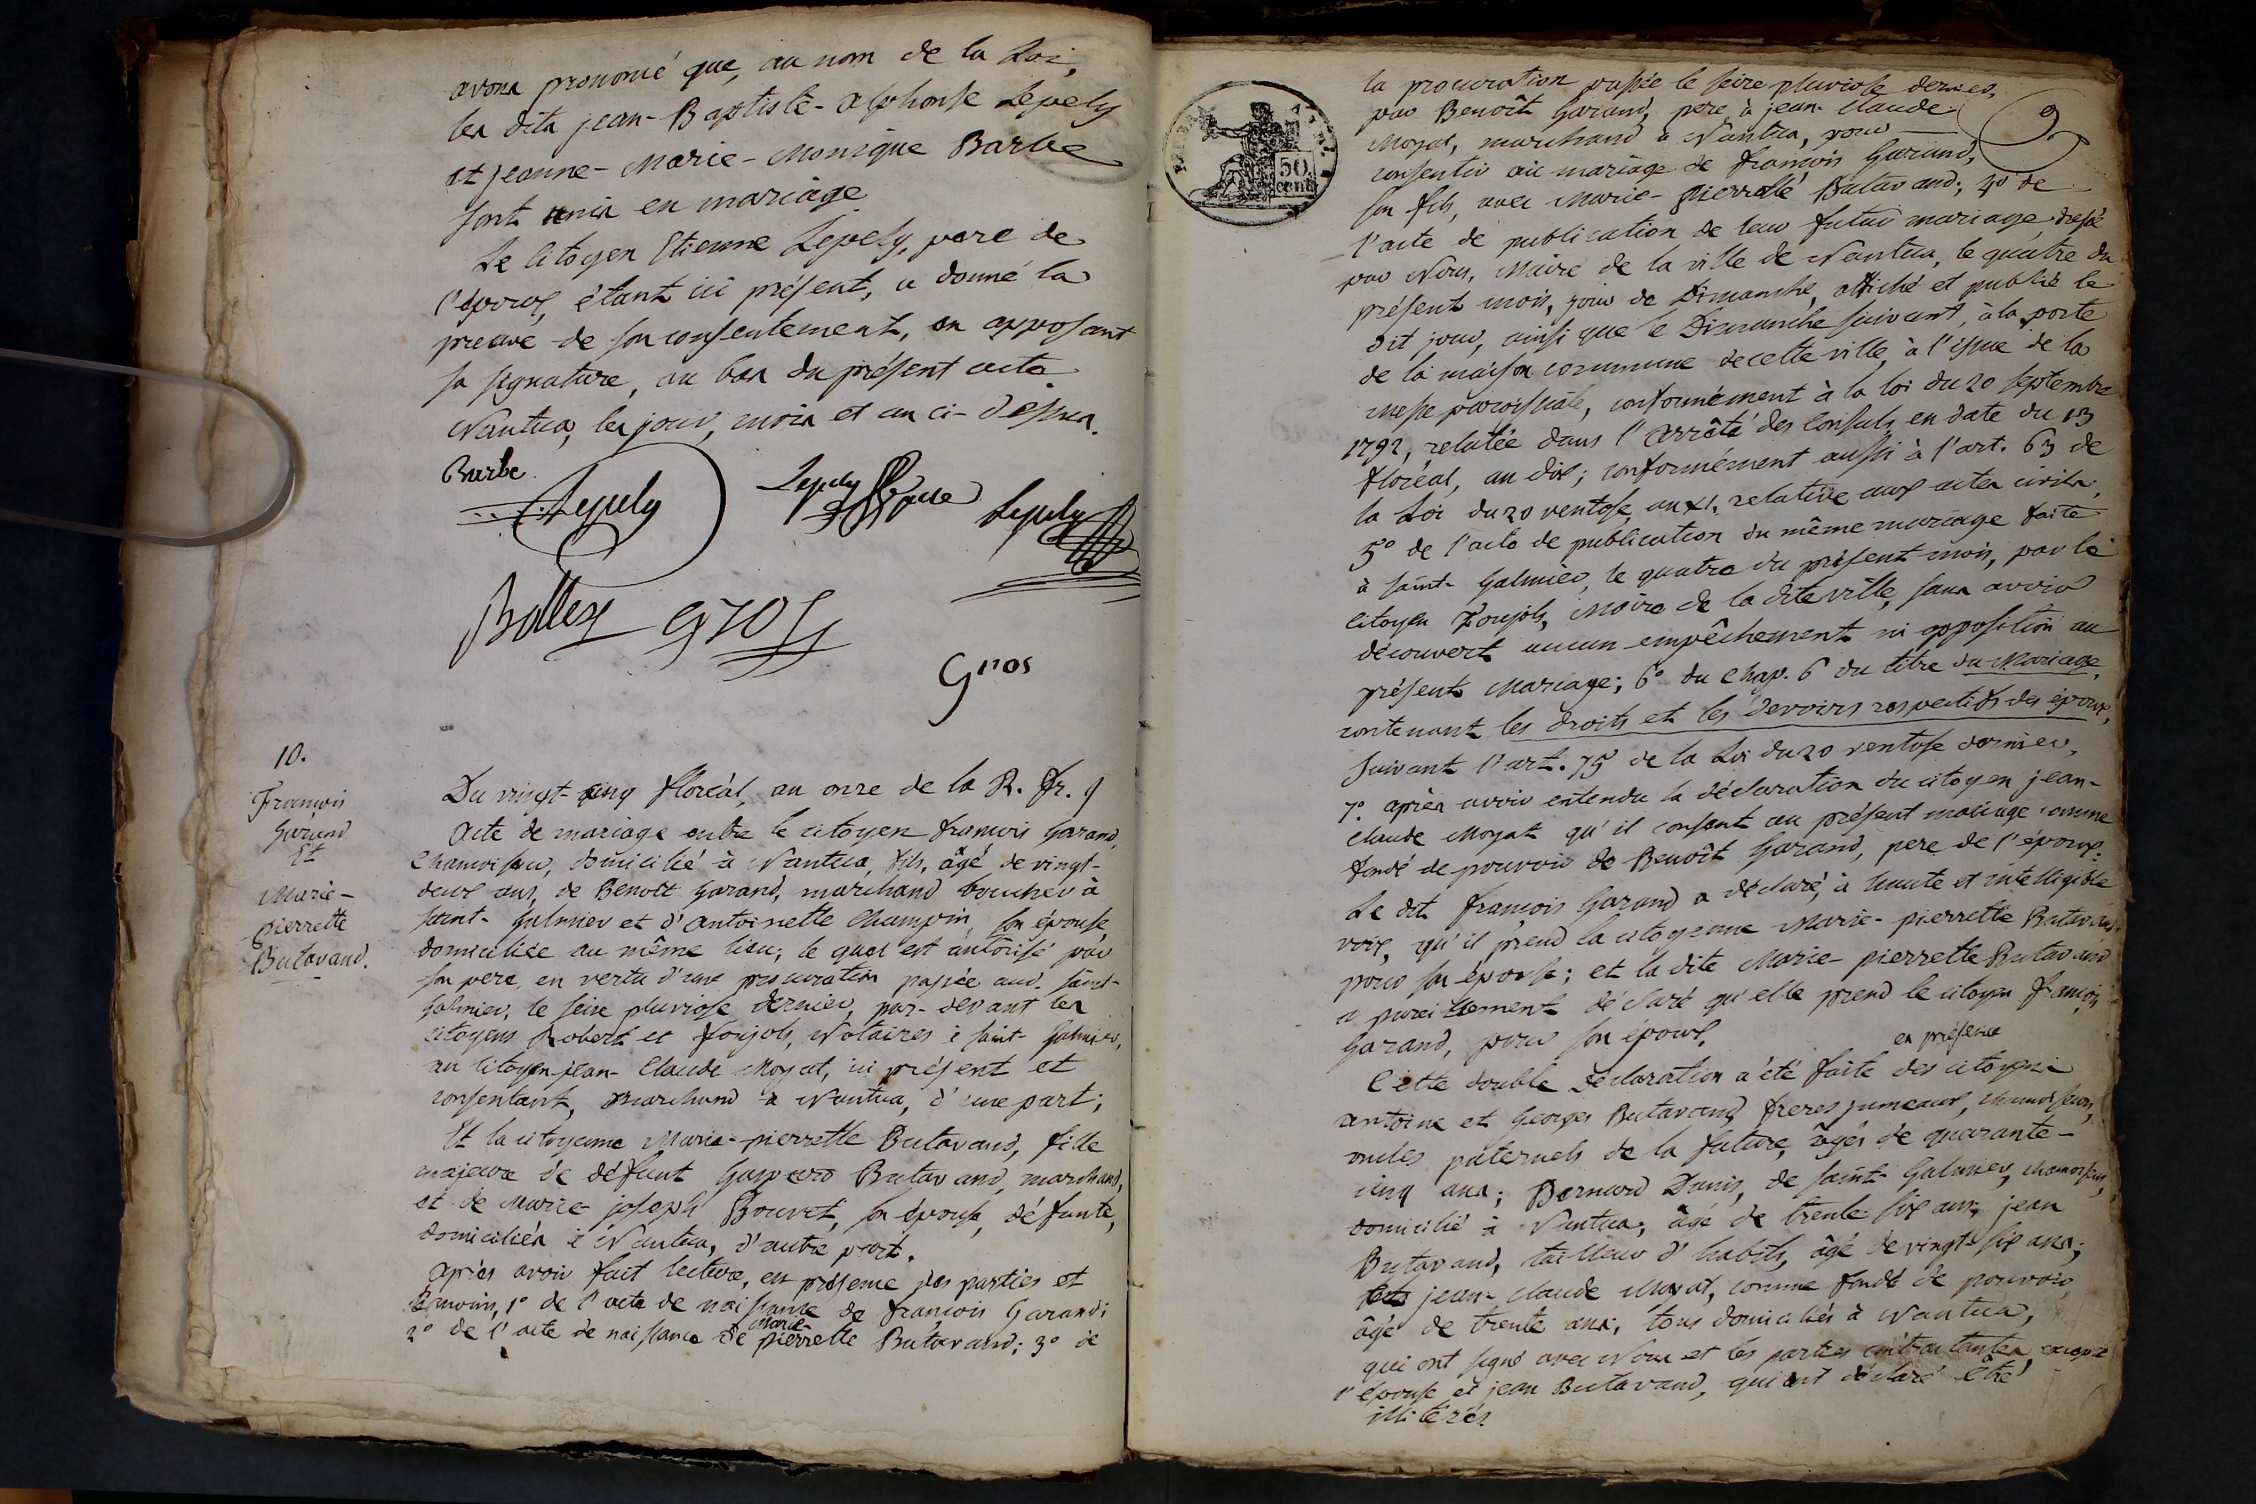 avons prononcé que, au nom de la Loi,
les dits jean-Baptiste-alphonse Lepely
et jeanne-Marie-Monique Barbe
sont unis en mariage
Le Citoyen Etienne Lepely, pere de
l'époux, étant ici présent, a donné la
preuve de son consentement, en apposant
sa signature, au bas du présent acte.
Nantua, les jour, mois et an ci-dessus.
Barbe
Lepely
Lepely
Lepely
Gros
Gros
10.
François
Garand
Et
Marie-
pierrette
Butavand.
Du vingt-cinq floréal, an onze de la R. fr.
acte de mariage entre le citoyen françois Garand,
Chamoiseur, domicilié à Nantua, fils, âgé de vingt-
deux ans, de Benoît Garand, marchand boucher à
saint-Galmier et d'antoinette Champin, son épouse,
domiciliée au même lieu; le quel est autorisé par
son pere, en vertu d'une procuration passée aud. saint-
Galmier, le seize pluviose dernier, par-devant les
citoyens Robert et foujols, Notaires à saint-Galmier,
au citoyen jean-Claude Moyat, ici présent et
consentant, marchand à Nantua, d'une part;
Et la citoyenne Marie-pierrette Butavand, fille
majeure de défunt Gaspard Butavand, marchand,
et de Marie-joseph Bouvet, son épouse, défunte,
domiciliés à Nantua, d'autre part.
après avoir fait lecture, en présence des parties et
témoins, 1° de l'acte de naissance de françois Garand;
2° de l'acte de naissance de Marie-pierrette Butavand; 3° de
9
50
cent
la procuration passée le seize pluviose dernier,
par Benoît Garand, pere, à jean-Claude
Moyat, marchand à Nantua, pour
consentir au mariage de françois Garand,
son fils, avec Marie-pierrette Butavand; 4° de
l'acte de publication de leur futur mariage dressé
par Nous, Maire de la ville de Nantua, le quatre du
présent mois, jour de Dimanche, affiché et publié le
dit jour, ainsi que le Dimanche suivant, à la porte
de la maison commune de cette ville, à l'issue de la
messe paroissiale, conformément à la loi du 20 septembre
1792, relatée dans l'arrêté des Consuls, en date du 13
floréal, an dix; conformément aussi à l'art. 63 de
la Loi du 20 ventose, an XI, relative aux actes civils;
5° de l'acte de publication du même mariage faite
à saint-Galmier, le quatre du présent mois, par le
citoyen foujols, Maire de la dite ville, sans avoir
découvert aucun empêchement ni opposition au
présent Mariage; 6° du chap. 6 du titre du Mariage,
contenant les droits et les devoirs respectifs des époux,
suivant l'art. 75 de la Loi du 20 ventose dernier,
7° après avoir entendu la déclaration du citoyen jean-
Claude Moyat qu'il consent au présent mariage comme
fondé de pouvoir de Benoît Garand, pere de l'époux:
Le dit françois Garand a déclaré, à haute et intelligible
voix, qu'il prend la citoyenne Marie-pierrette Butavand
pour son épouse; et la dite Marie-pierrette Butavand
a pareillement déclaré qu'elle prend le citoyen françois
Garand, pour son époux.
en présence
Cette double déclaration a été faite des citoyens
antoine et Georges Butavand, freres jumeaux, chamoiseurs,
oncles paternels de la future, âgés de quarante-
cinq ans; Bernard Dunis, de saint-Galmier, chamoiseur,
domicilié à Nantua, âgé de trente six ans; jean
Butavand, tailleur d'habits, âgé de vingt-six ans;
jean-Claude Moyat, comme fondé de pouvoir,
âgé de trente ans, tous domiciliés à Nantua,
qui ont signé avec Nous et les parties contractantes, excepté
l'épouse et jean Butavand, qui ont déclaré être
illitérés